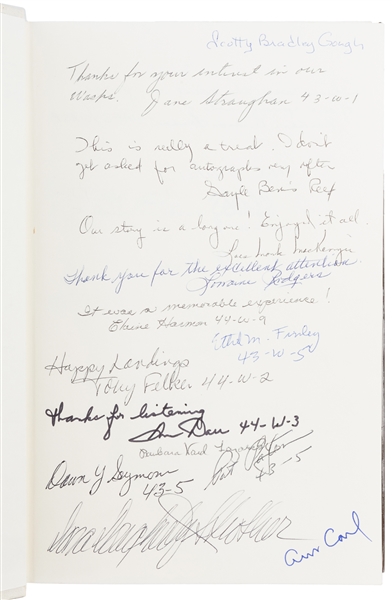 Scotty Bradley Gough
Thanks for your interest in our
Wasps. Jane Straughan 43-W-1
This is really a treat. I don't
get asked for autographs very often
Gayle Bevis Reed
Our story is a long one! Enjoyed it all.
Thank you for the excellent attention.
Lorraine Rodgers
It was a memorable experience!
Elaine Harmon 44-W-9
Ethel M. Finley
43-W-5
Happy Landings
Tony Felker 44-W-2
Thanks for listening
44-W-3
Barbara Kard
Dawn Y Seymour
43-5
Pat
43-5
Ann Carl